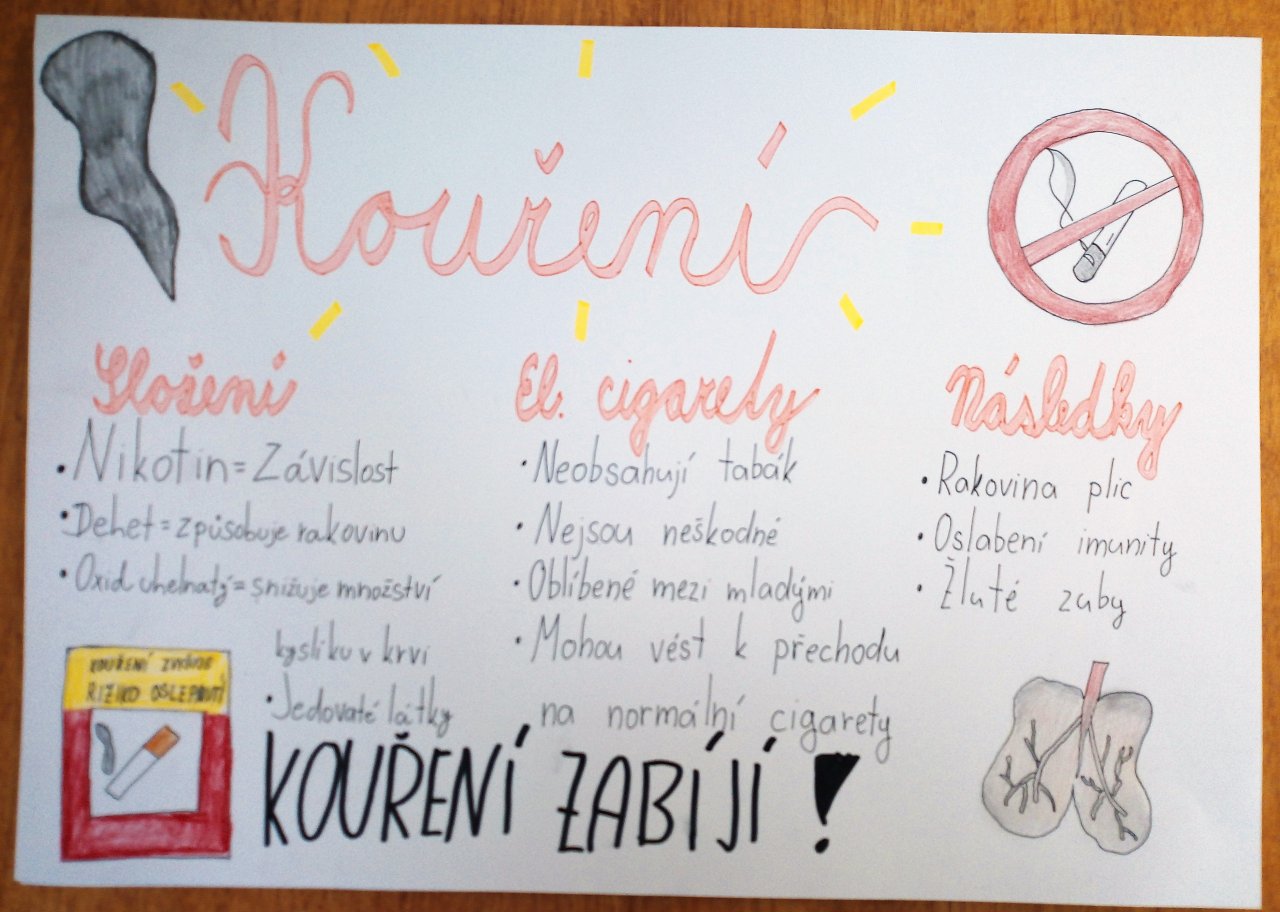 Kouření
Složení
• Nikotin = Závislost
• Dehet = způsobuje rakovinu
• Oxid uhelnatý = snižuje množství
kyslíku v krvi
• Jedovaté látky
El. cigarety
• Neobsahují tabák
• Nejsou neškodné
• Oblíbené mezi mladými
• Mohou vést k přechodu
na normální cigarety
Následky
• Rakovina plic
• Oslabení imunity
• Žluté zuby
KOUŘENÍ ZVYŠUJE
RIZIKO OSLEPNUTÍ
KOUŘENÍ ZABÍJÍ !